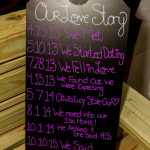 Our Love Story
4.23.13 We Met
5.10.13 We Started Dating
7.28.13 We Fell In Love
9.13.13 We Found Out We
Were Expecting
5.7.14 Olivia Lucy Stole Our ♡
8.1.14 We moved into our
1st Home!
10.1.14 He Asked &
She Said YES
10.10.15 We Said